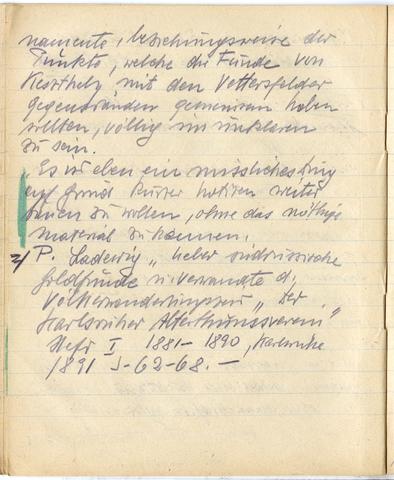 namente, beziehungsweise der
Punkte, welche die Funde von
Keszthely mit den Vettersfelder
gegenständen gemeinsam haben
sollten, völlig im unklaren
zu sein.
Es ist eben ein missliches Ding
auf Grund kurzer Notizen weiter
bauen zu wollen, ohne das nöthige
material zu kennen.
2/ P. Ladewig „Ueber südrussische
Goldfunde u. verwandte d.
Völkerwanderungszeit„ Der
Karlsruher Alterthumsverein"
Heft I 1881-1890, Karlsruhe
1891 S-62-68.—